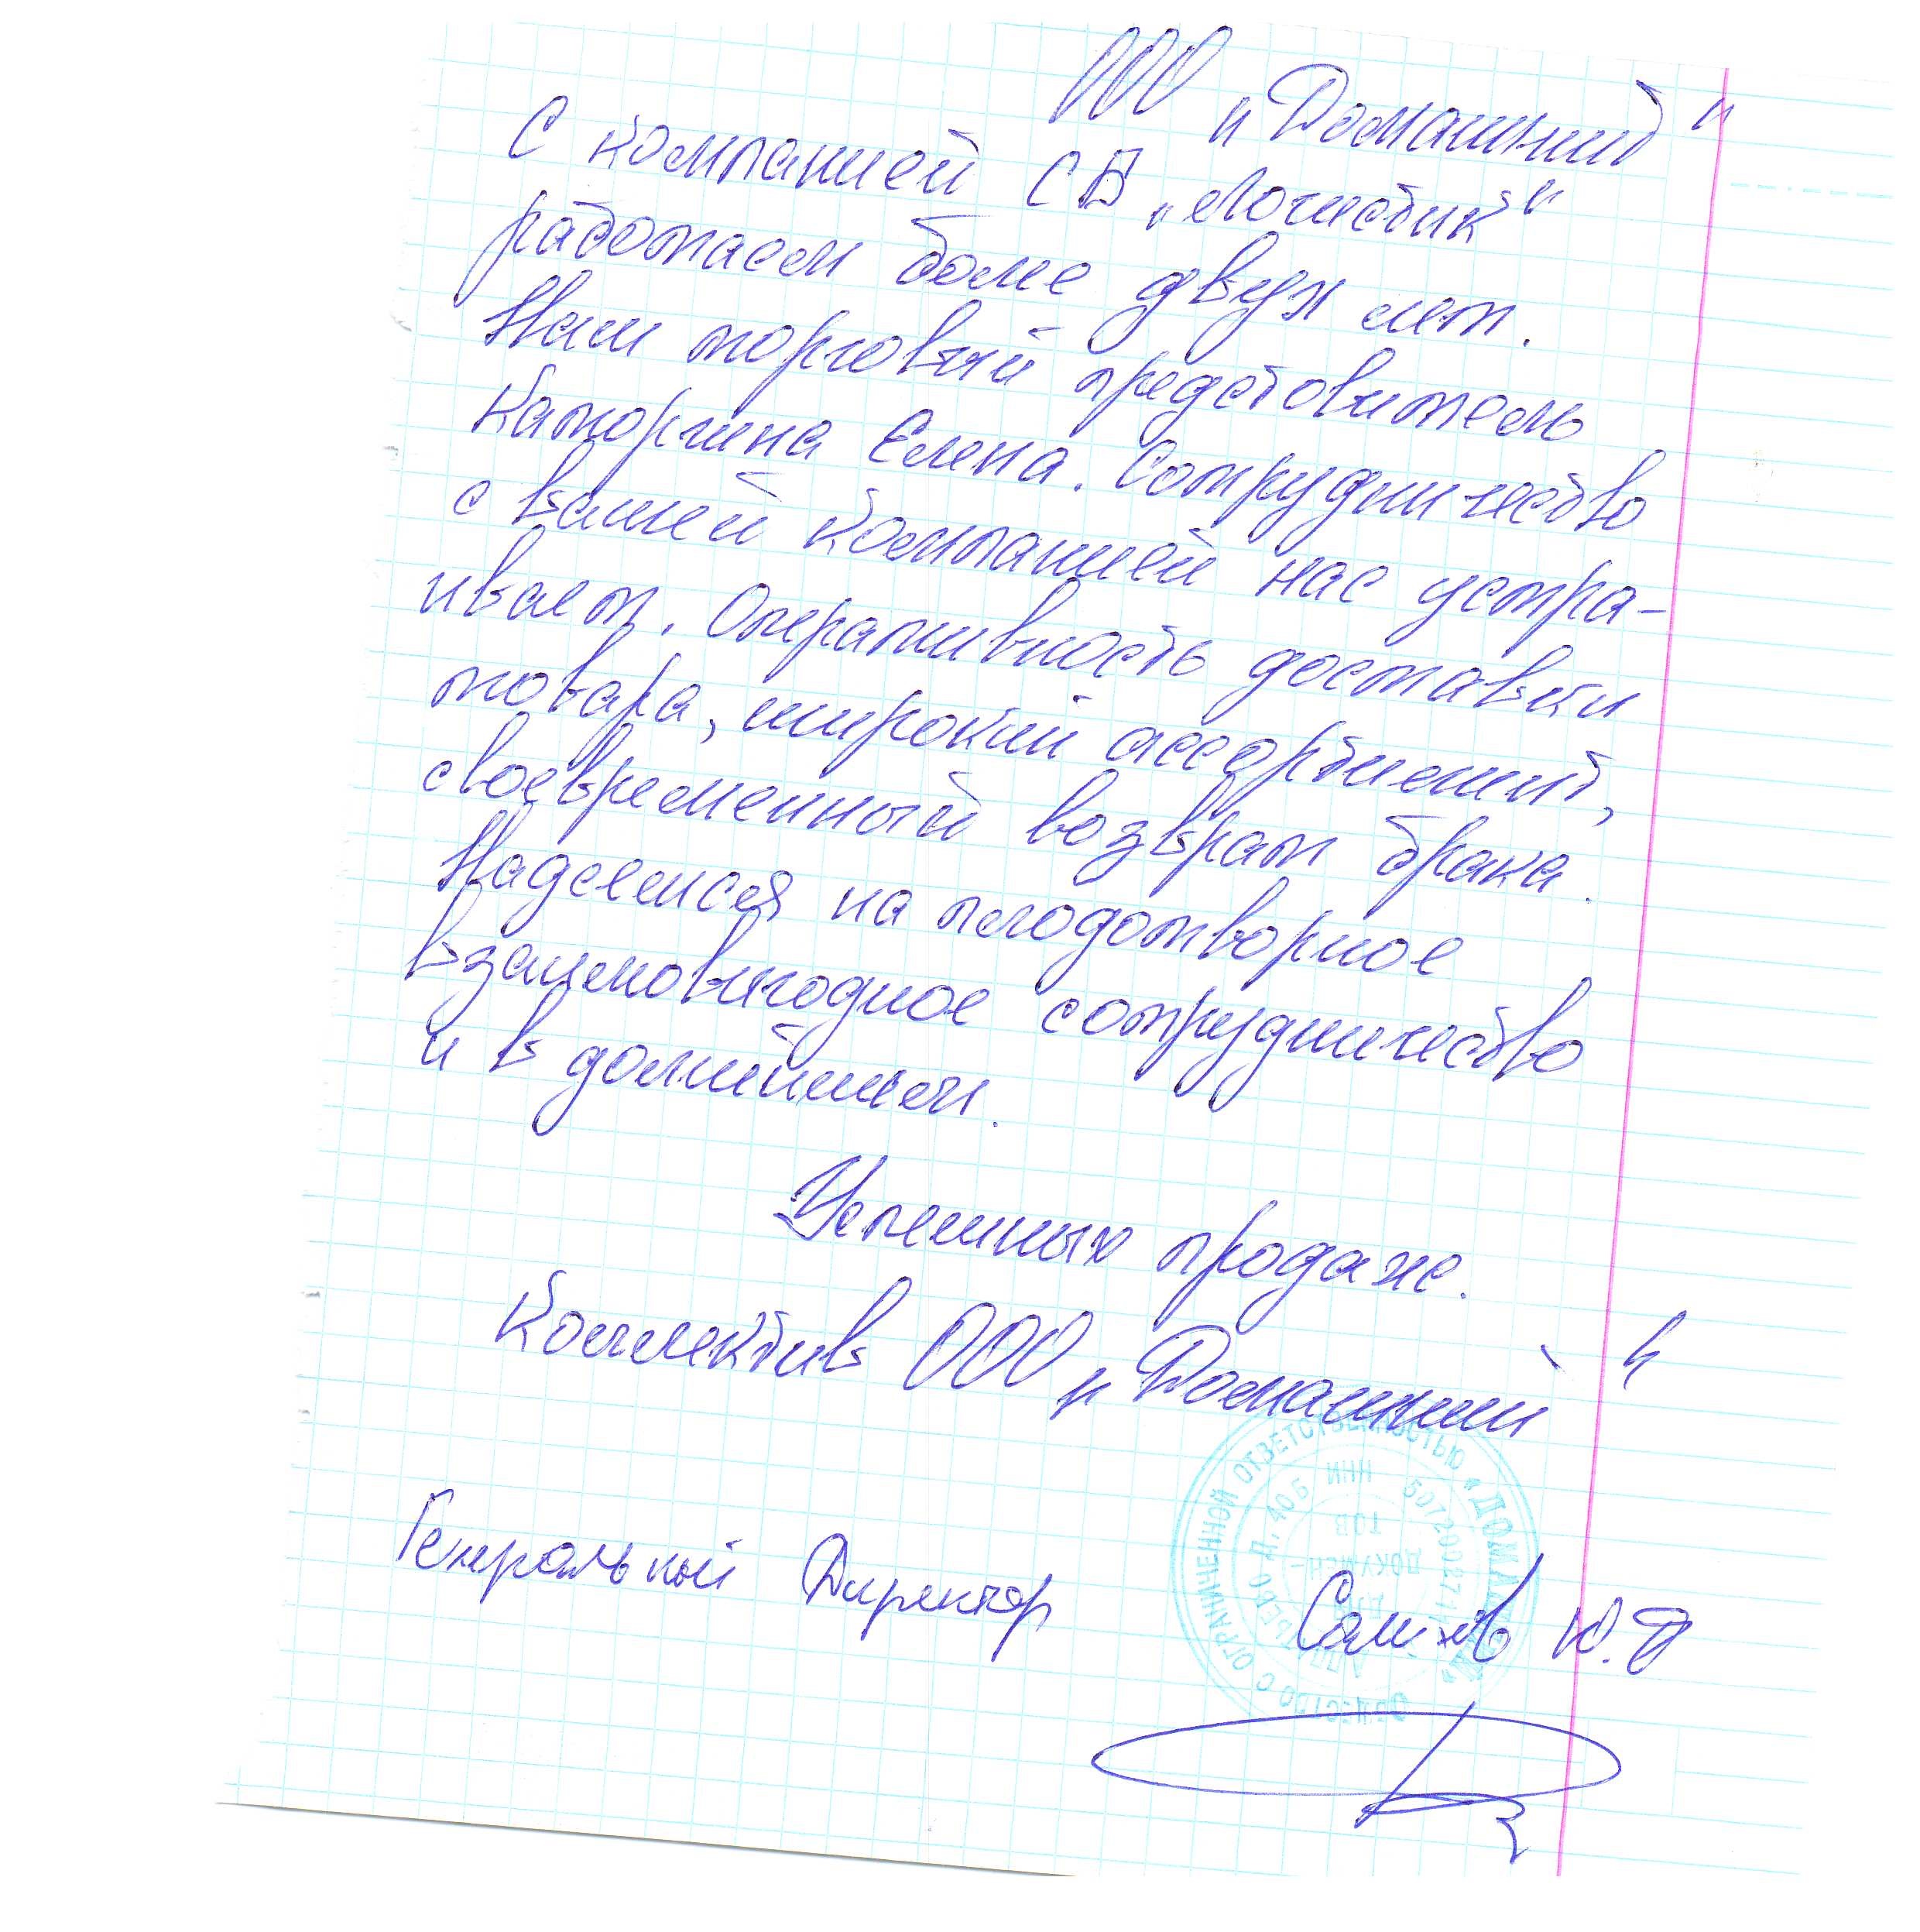 ООО "Домашний"
С компанией СБ "Логистик"
работаем более двух лет.
Наш торговый представитель
Каторгина Елена. Сотрудничество
с вашей компанией нас устра-
ивает. Оперативность доставки
товара, широкий ассортимент,
своевременный возврат брака.
Надеемся на плодотворное
взаимовыгодное сотрудничество
и в дальнейшем.
Успешных продаж.
Коллектив ООО "Домашний"
Генеральный Директор
Ю.
ОБЩЕСТВО С ОГРАНИЧЕННОЙ ОТВЕТСТВЕННОСТЬЮ
ИНН